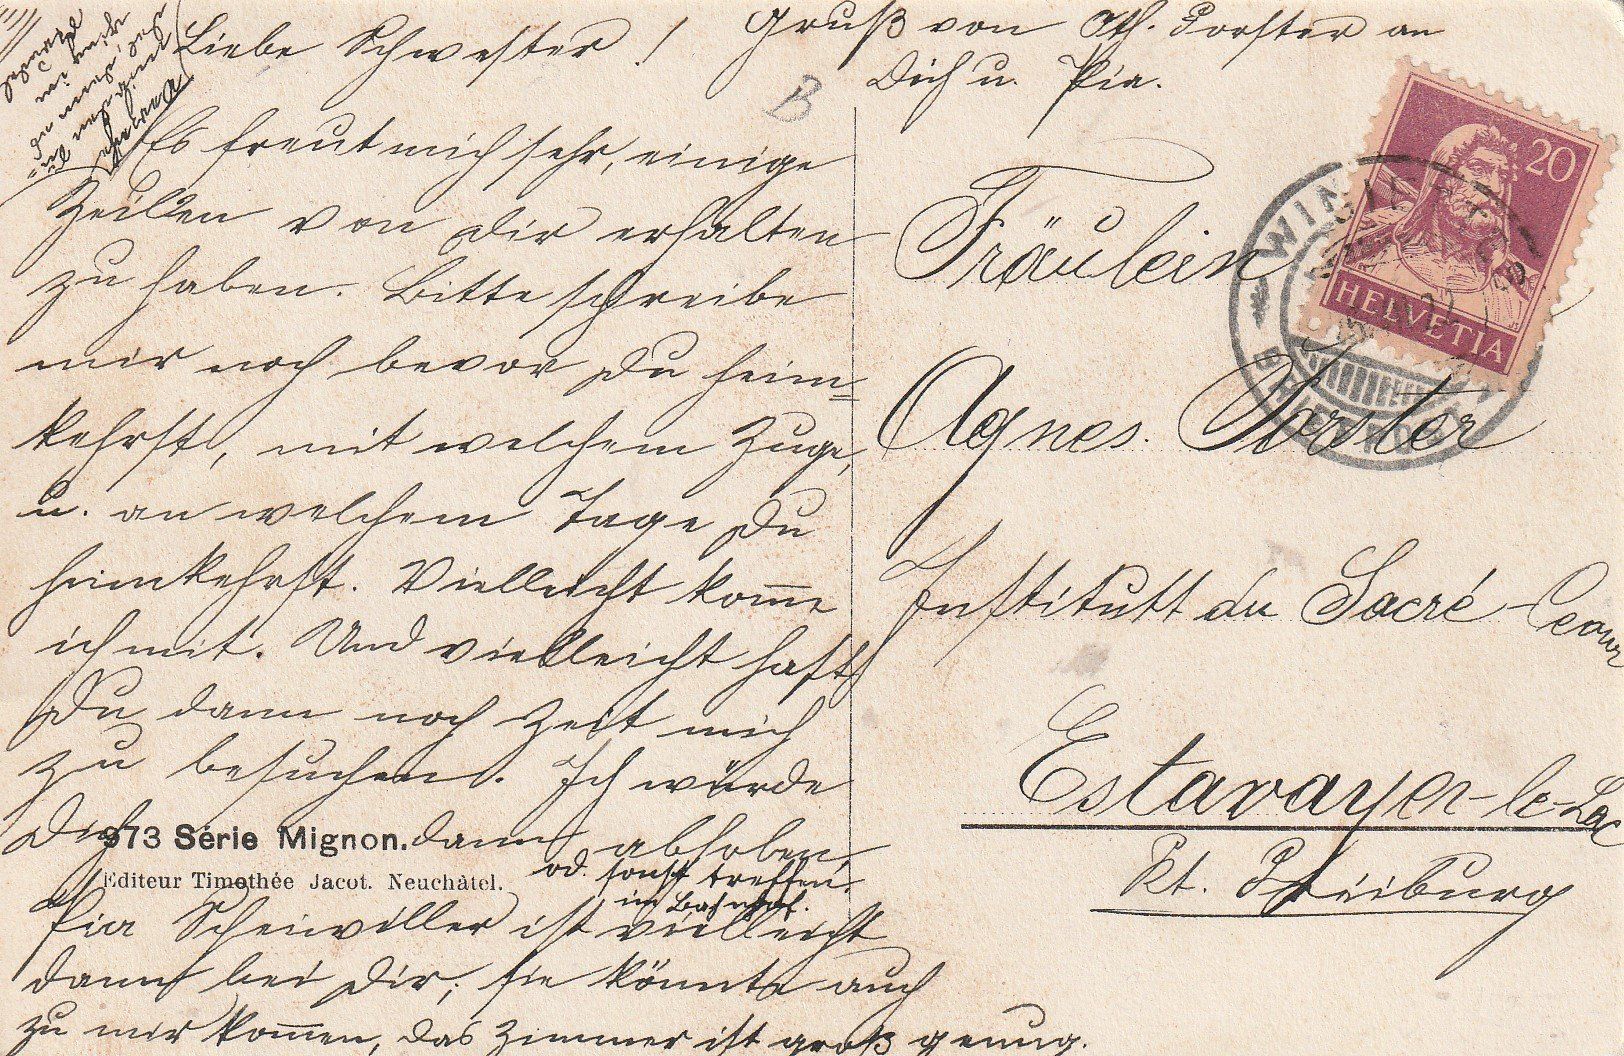 Liebe Schwester!
Es freut mich sehr, einige
Zeilen von Dir erhalten
zu haben. Bitte schreibe
mir noch bevor Du heim-
kehrst, mit welchem Zuge,
u. an welchem Tage Du
heimkehrst. Vielleicht komme
ich mit. Und vielleicht hast
Du dann noch Zeit mich
zu besuchen. Ich würde
Dich dann abholen,
od. sonst treffen.
im Bahnhof.
Pia Scheiwiller ist vielleicht
dann bei Dir, sie könnte auch
zu mir kommen, das Zimmer ist groß genug.
Gruß von Oth. Forster an
Dich u. Pia.
B
Fräulein
Agnes. Forster
Institutt du Sacré-Coeur
Estavayer-le-Lac
Kt. Freiburg
20
HELVETIA
WINTERTHUR
973 Série Mignon.
Editeur Timothée Jacot. Neuchâtel.